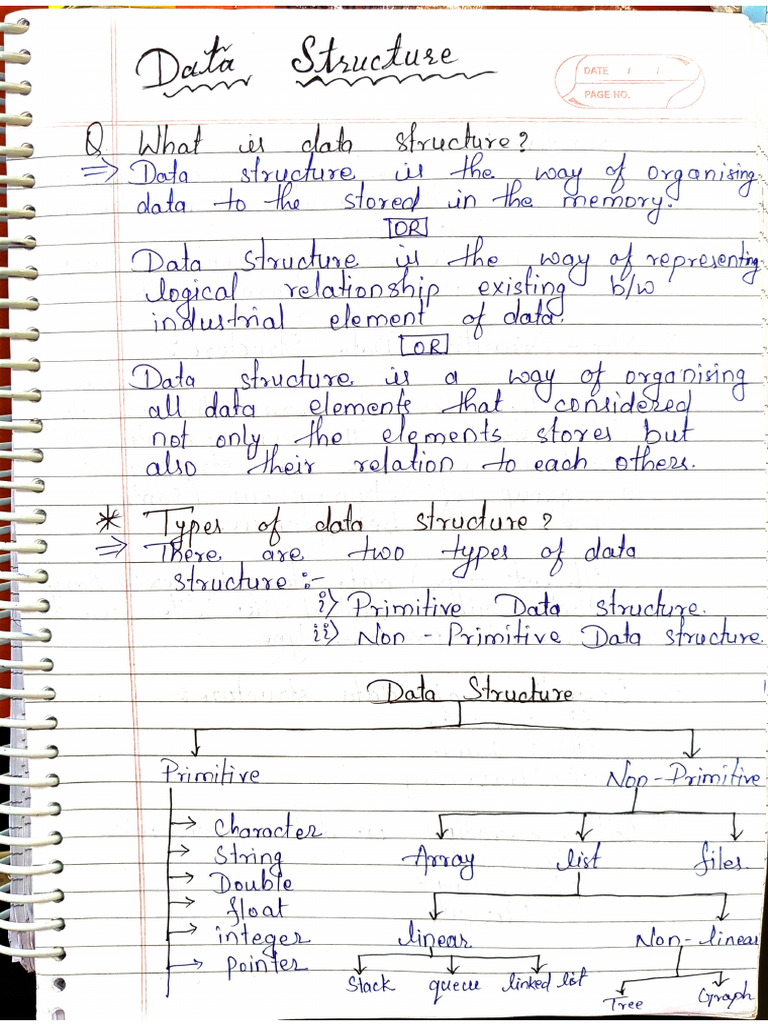 Data Structure
DATE / /
PAGE NO.
Q What is data structure?
⇒ Data structure is the way of organising
data to the stored in the memory.
OR
Data structure is the way of representing
logical relationship existing b/w
industrial element of data.
OR
Data structure is a way of organising
all data elements that considered
not only the elements stores but
also their relation to each others.
* Types of data structure?
⇒ There are two types of data
structure :-
i) Primitive Data structure.
ii) Non - Primitive Data structure.
Data Structure
Primitive Non-Primitive
→ Character
→ String Array list files
→ Double
→ float
→ integer linear Non-linear
→ pointer
Stack queue linked list Tree Graph